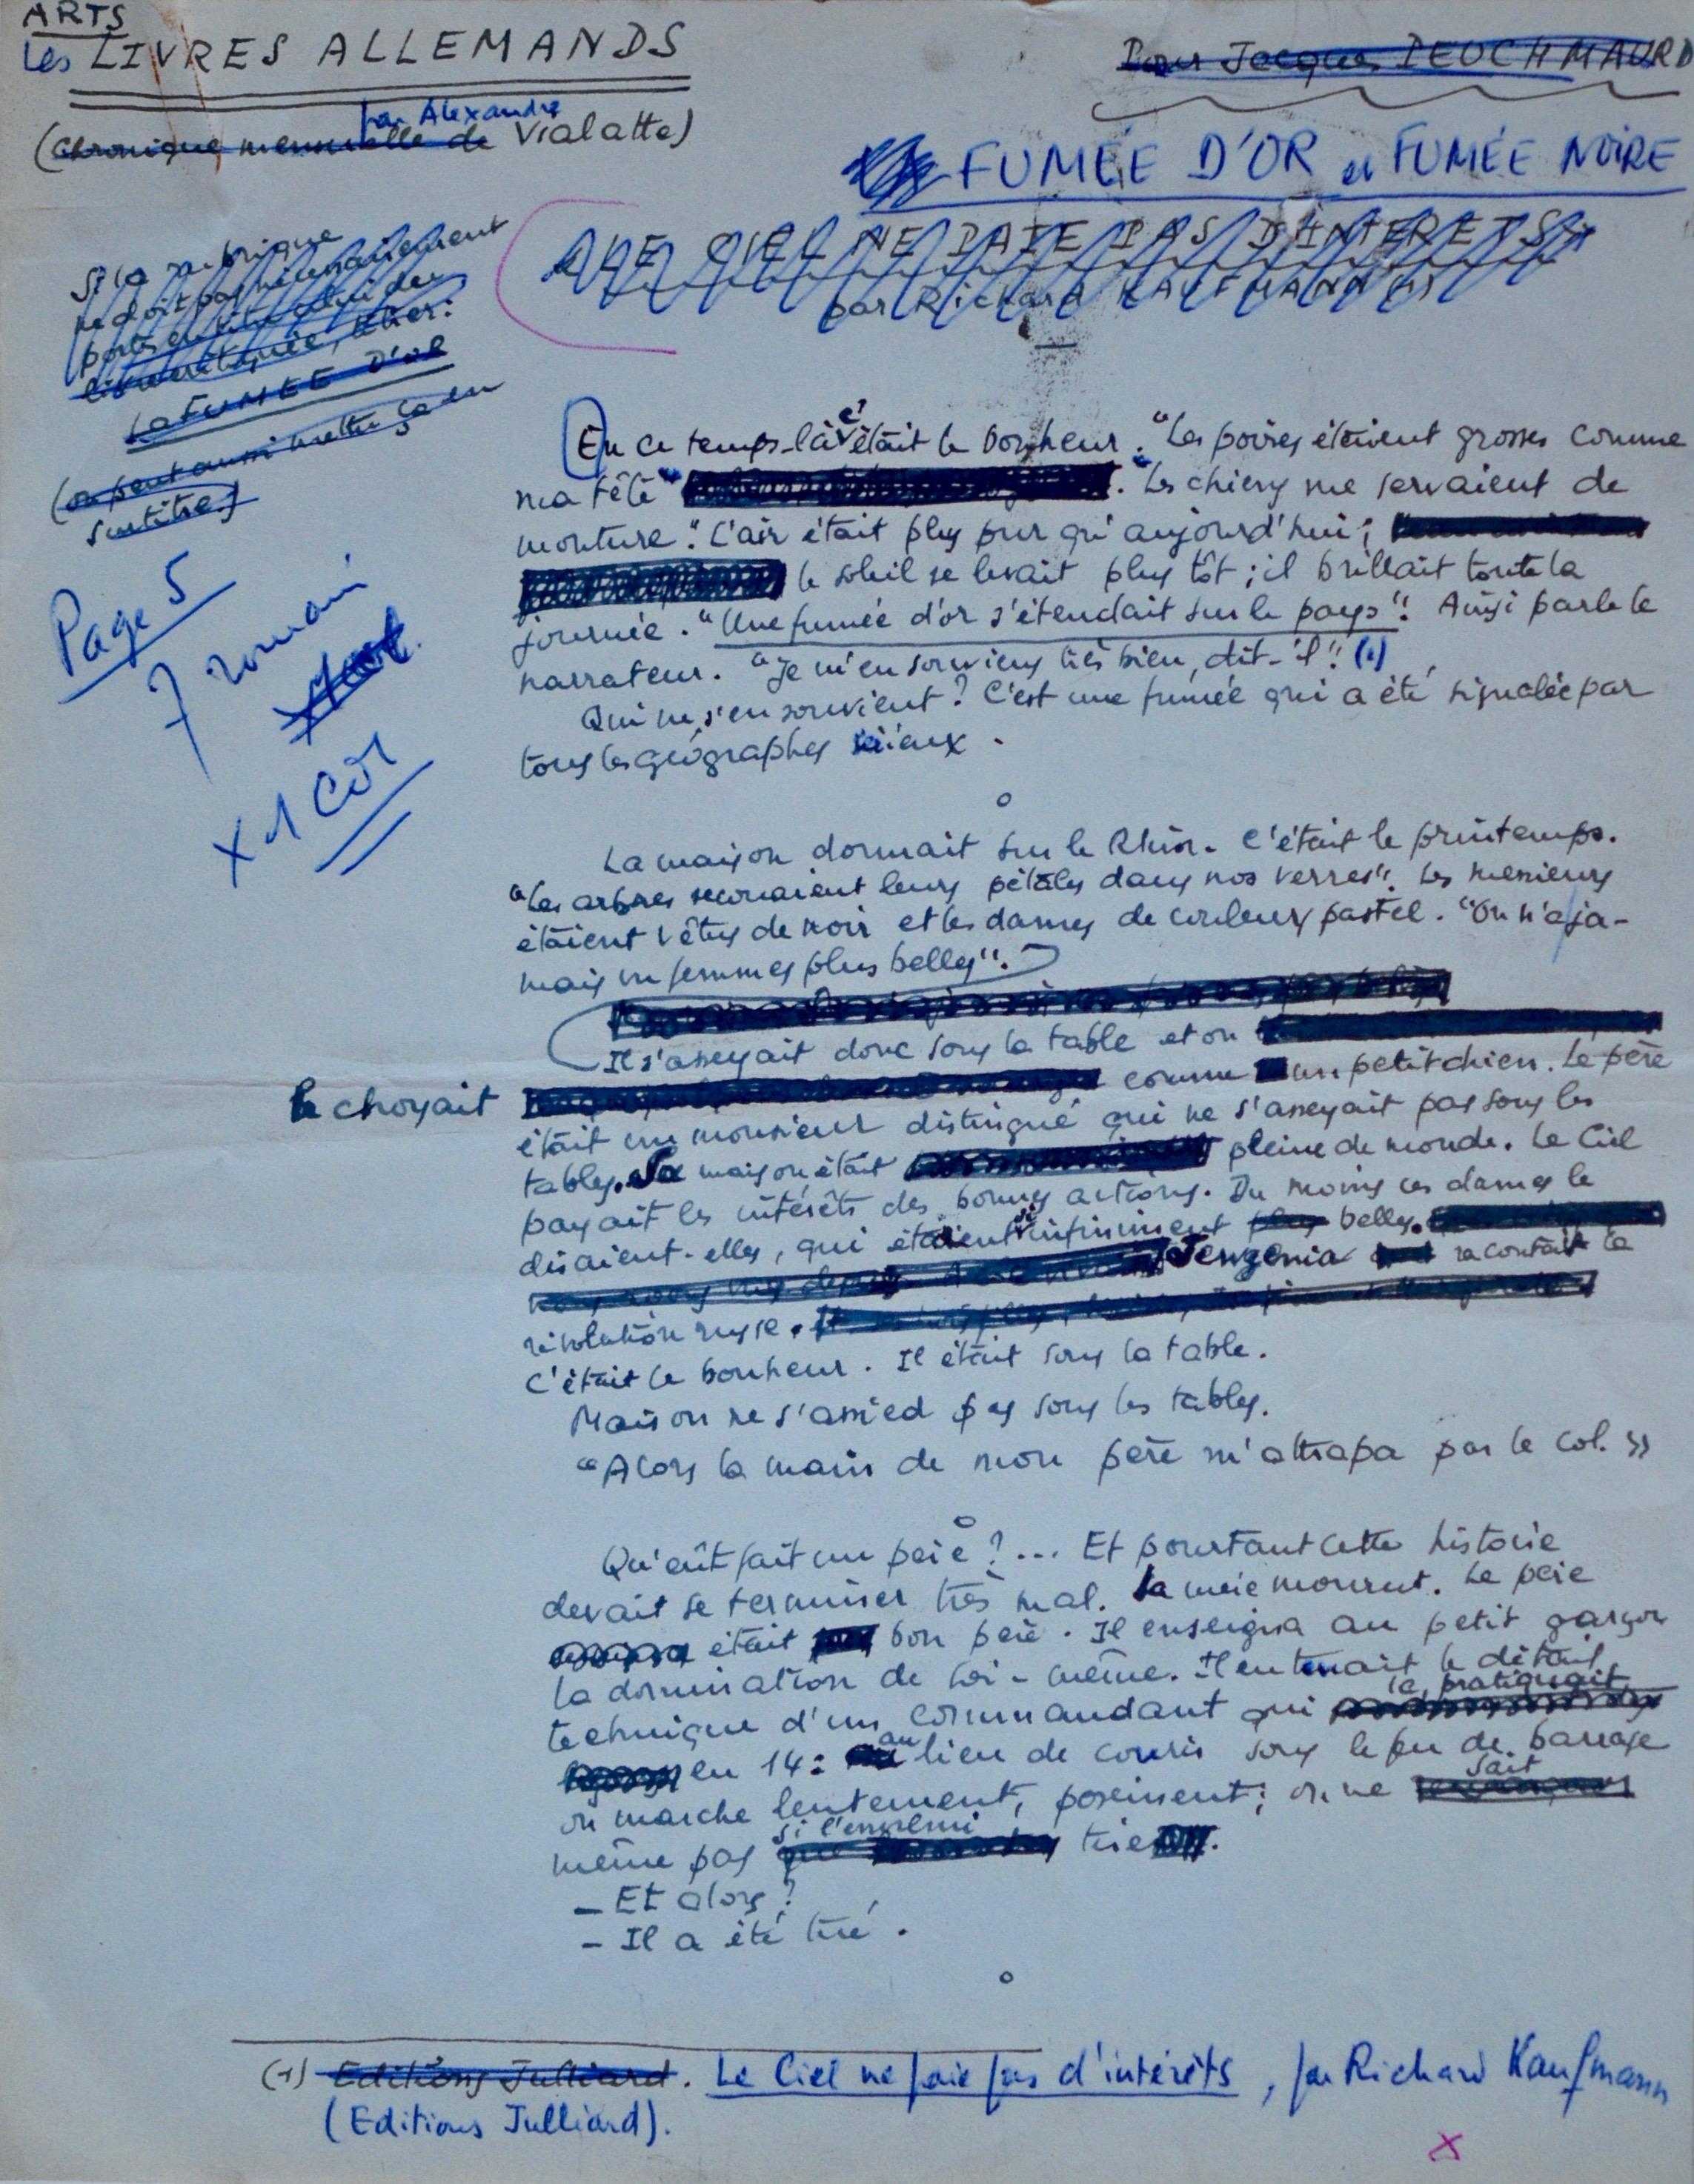 ARTS
Les LIVRES ALLEMANDS
Pour Jacques PEUCHMAURD
par Alexandre
(Chronique mensuelle de Vialatte)
FUMÉE D'OR et FUMÉE NOIRE
LE CIEL NE PAIE PAS D'INTERETS
par Richard KAUFMANN (1)
Si la rubrique
ne doit pas nécessairement
porter en titre celui du
livre critiqué, titrer:
La FUMEE D'OR
(on peut aussi mettre ça en
surtitre)
Page 5
7 romain
X 1 Col
En ce temps-là c'était le bonheur. "Les poires étaient grosses comme
ma tête". "Les chiens me servaient de
monture". L'air était plus pur qu'aujourd'hui;
le soleil se levait plus tôt; il brillait toute la
journée. "Une fumée d'or s'étendait sur le pays". Ainsi parle le
narrateur. "Je m'en souviens très bien, dit-il". (1)
Qui ne s'en souvient? C'est une fumée qui a été signalée par
tous les géographes sérieux.
La maison dormait sur le Rhin. C'était le printemps.
"Les arbres secouaient leurs pétales dans nos verres". Les messieurs
étaient vêtus de noir et les dames de couleurs pastel. "On n'a ja-
mais vu femmes plus belles".
Il s'asseyait donc sous la table et on
le choyait comme un petit chien. Le père
était un monsieur distingué qui ne s'asseyait pas sous les
tables. Sa maison était pleine de monde. Le Ciel
payait les intérêts des bonnes actions. Du moins ces dames le
disaient-elles, qui étaient si infiniment plus belles.
Jewgenia racontait la
révolution russe.
C'était le bonheur. Il était sous la table.
Mais on ne s'assied pas sous les tables.
"Alors la main de mon père m'attrapa par le col."
Qu'eût fait un père?... Et pourtant cette histoire
devait se terminer très mal. La mère mourut. Le père
était bon père. Il enseigna au petit garçon
la domination de soi-même. Il en tenait le détail
technique d'un commandant qui la pratiquait
en 14: au lieu de courir sous le feu de barrage
on marche lentement, posément; on ne sait
même pas si l'ennemi tire.
- Et alors?
- Il a été tué.
(1) Editions Julliard. Le Ciel ne paie pas d'intérêts, par Richard Kaufmann
(Editions Julliard).
X